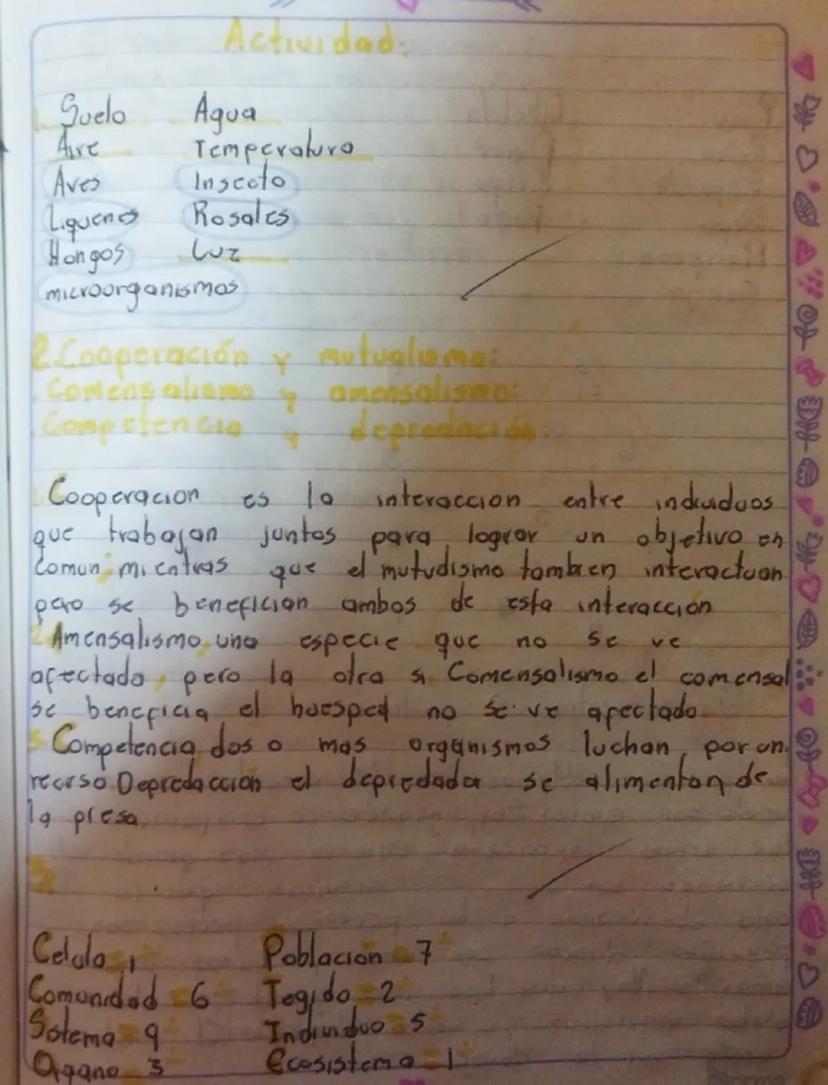 Actividad:
1. Suelo Agua
Aire Temperatura
Aves Insecto
Liquenes Rosales
Hongos Luz
microorganismos
2. Cooperación y mutualismo:
Comensalismo y amensalismo:
Competencia y depredación:
Cooperacion es la interaccion entre individuos
que trabajan juntos para lograr un objetivo en
comun, mientras que el mutudismo tambien interactuan
pero se benefician ambos de esta interacción
2. Amensalismo, una especie que no se ve
afectada, pero la otra si Comensalismo el comensal
se beneficia el huesped no se ve afectado
3. Competencia, dos o mas organismos luchan por un
recurso Depredaccion el depredador se alimentan de
la presa
3.
Celula = 1 Población = 7
Comunidad = 6 Tegido = 2
Sistema = 9 Individuo = 5
Organo = 3 ecosistema = 1